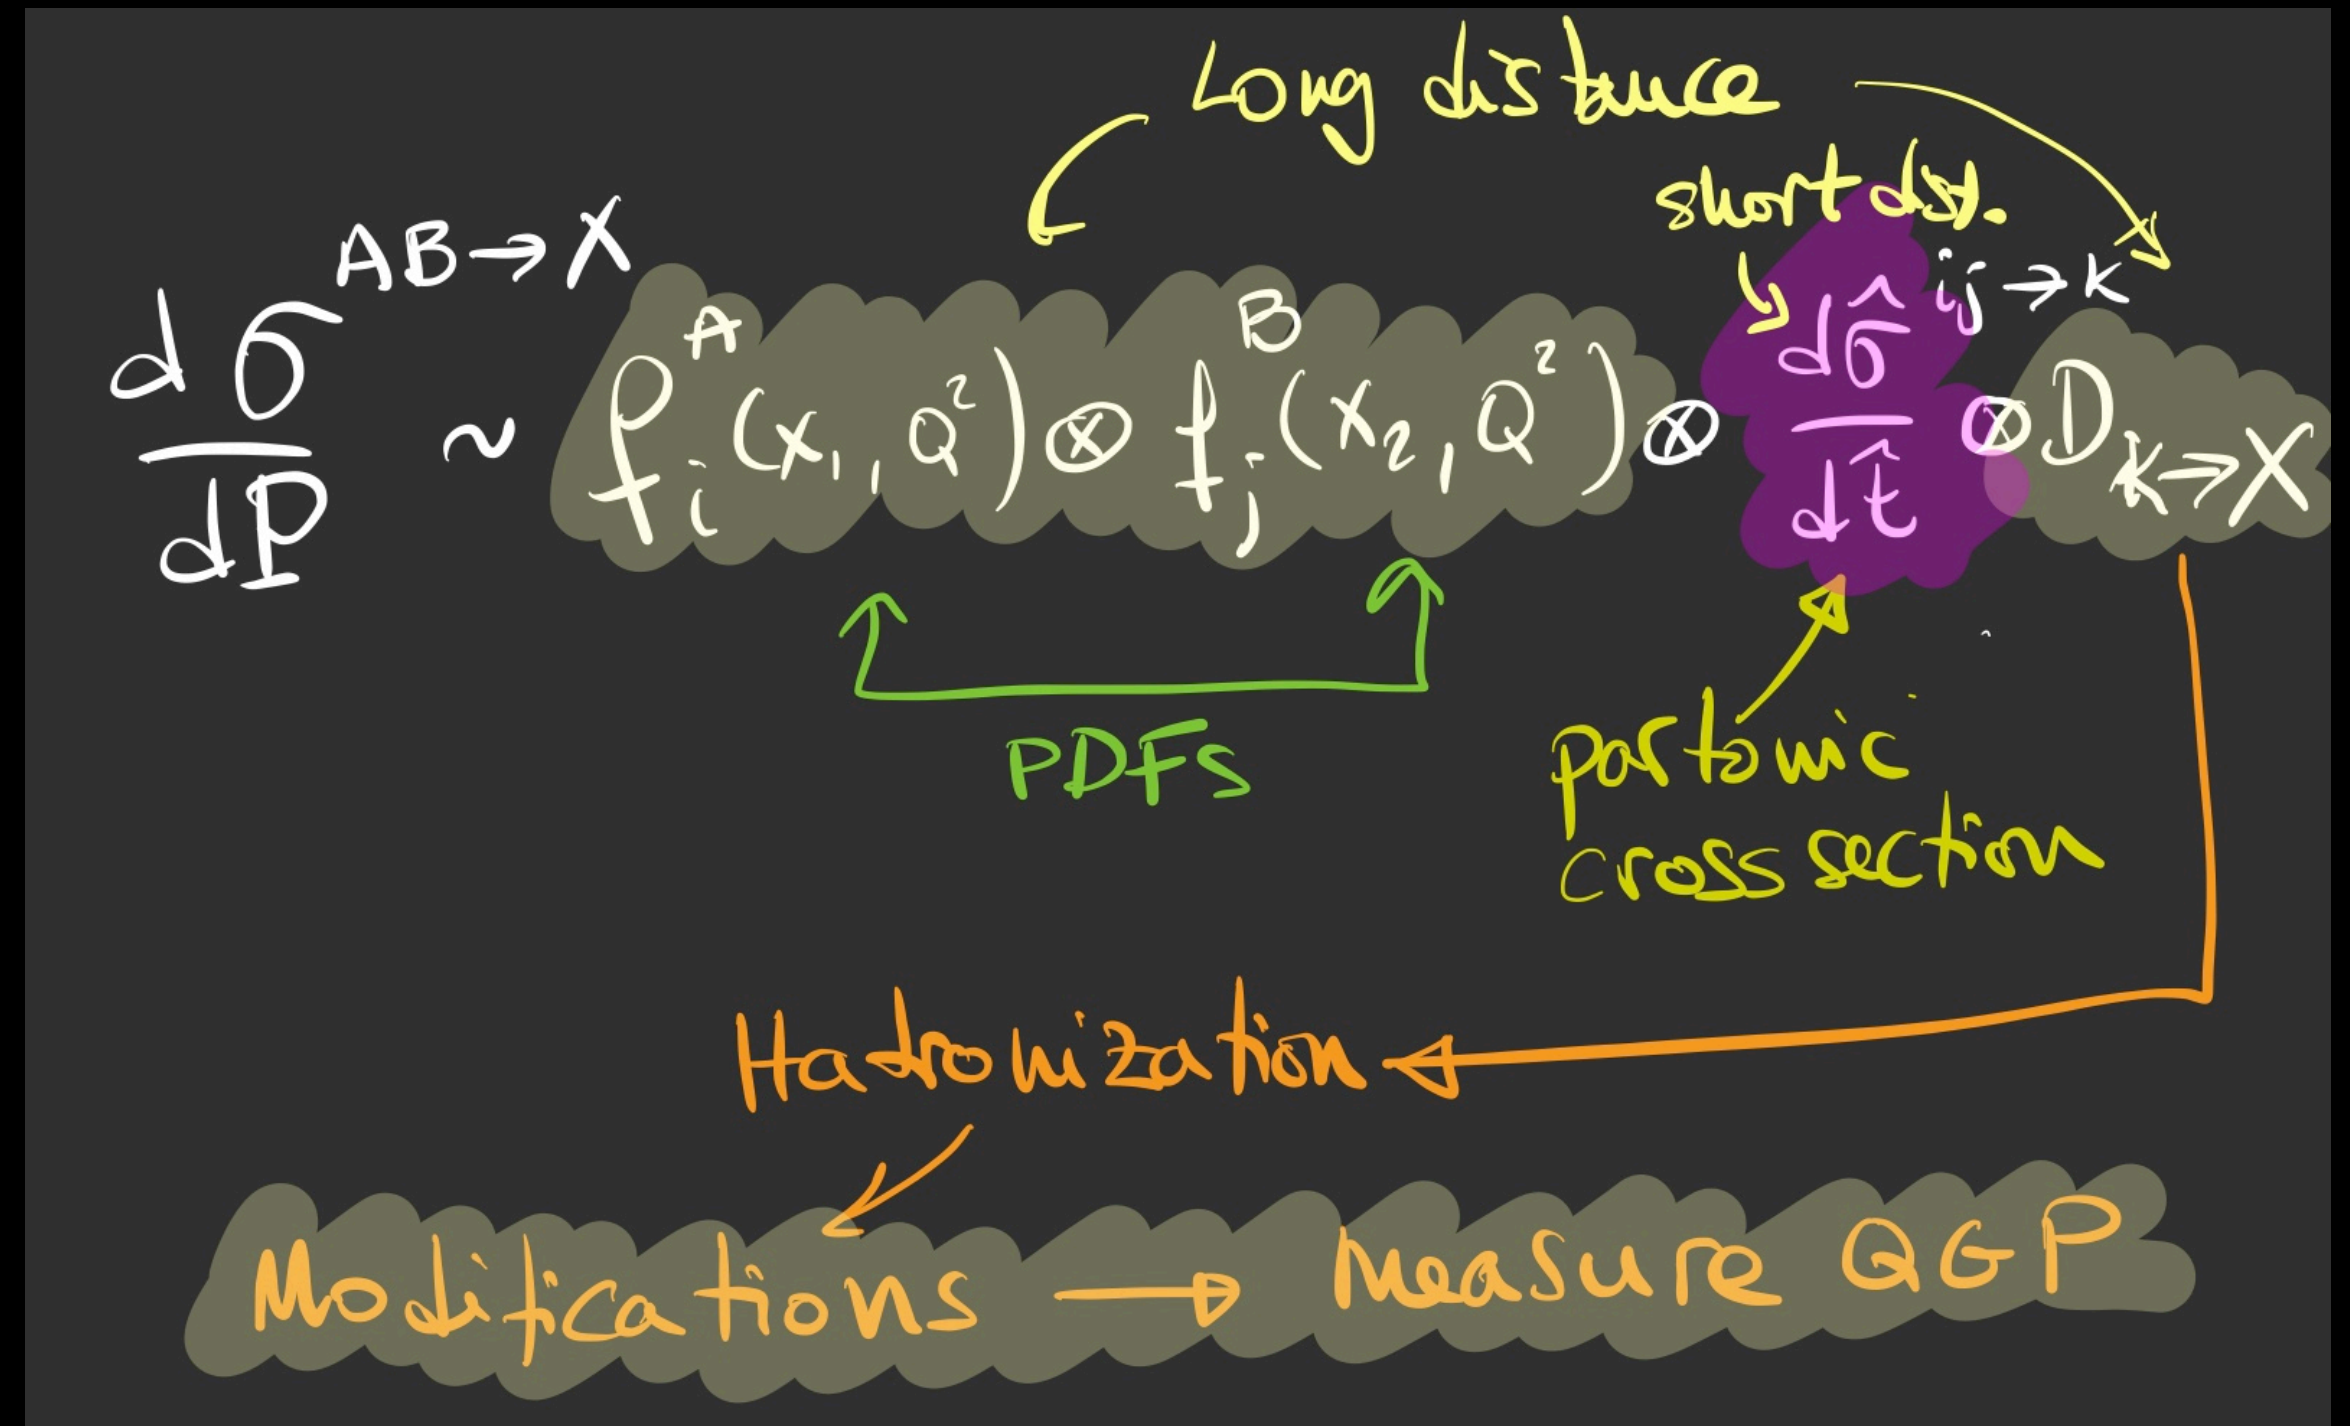 Long distance
short dist.
dσ^{AB→X}/dP ~ f_i^A(x₁, Q²) ⊗ f_j^B(x₂, Q²) ⊗ dσ̂^{ij→k}/dt̂ ⊗ D_{k→X}
PDFs
partonic
cross section
Hadronization
Modifications → Measure QGP